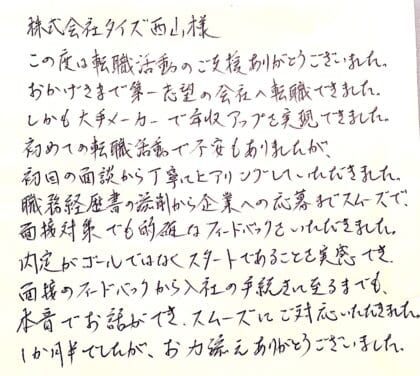 株式会社タイズ西山様
この度は転職活動のご支援ありがとうございました。
おかげさまで第一志望の会社へ転職できました。
しかも大手メーカーで年収アップを実現できました。
初めての転職活動で不安もありましたが、
初回の面談から丁寧にヒアリングしていただきました。
職務経歴書の添削から企業への応募までスムーズで、
面接対策でも的確なフィードバックをいただきました。
内定がゴールではなくスタートであることを実感でき、
面接のフィードバックから入社の手続きに至るまでも、
本音でお話ができ、スムーズにご対応いただきました。
1か月半でしたが、お力添えありがとうございました。